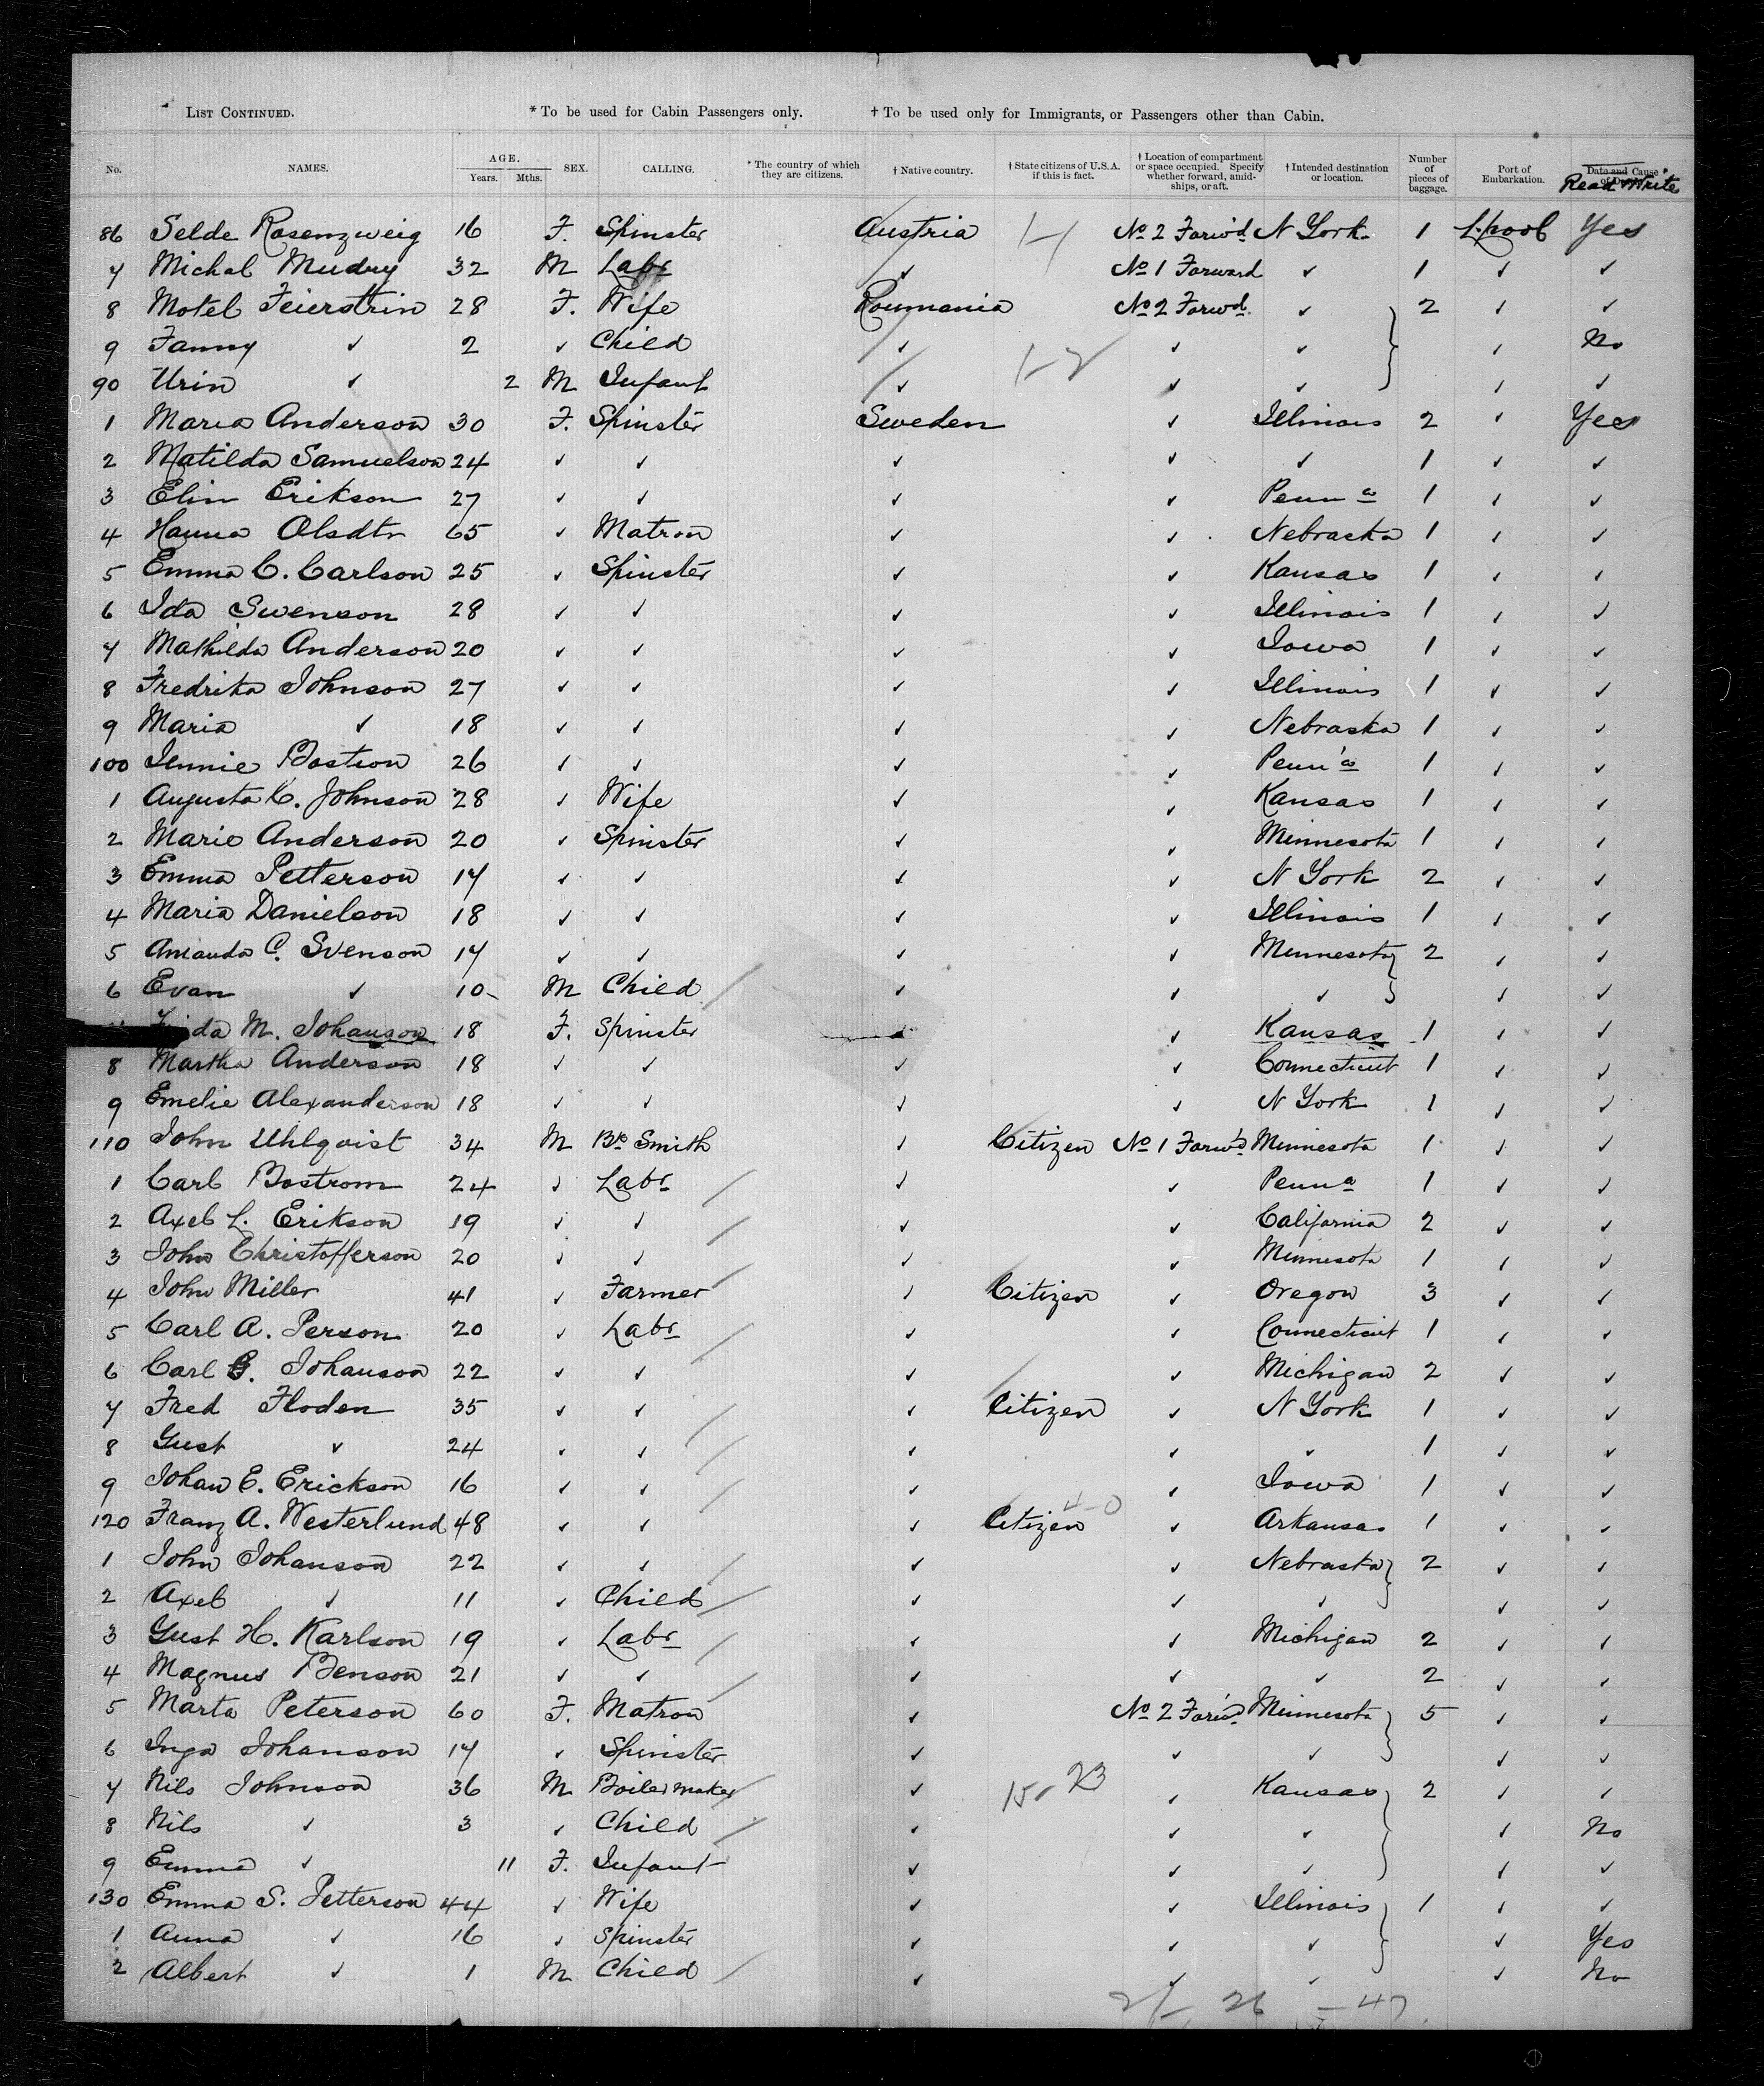 LIST CONTINUED. * To be used for Cabin Passengers only. † To be used only for Immigrants, or Passengers other than Cabin.
No. NAMES. AGE. Years. Mths. SEX. CALLING. * The country of which they are citizens. † Native country. † State citizens of U.S.A. if this is fact. † Location of compartment or space occupied. Specify whether forward, amidships, or aft. † Intended destination or location. Number of pieces of baggage. Port of Embarkation. Date and Cause Read Write
86 Selde Rosenzweig 16 F. Spinster Austria No 2 Forw'd N York 1 L.pool Yes
7 Michal Mudry 32 M Labr ✓ No 1 Forward ✓ 1 ✓ ✓
8 Motel Feierstein 28 F. Wife Roumania No 2 Forwd. ✓ 2 ✓ ✓
9 Fanny ✓ 2 ✓ Child ✓ 1-2 ✓ ✓ ✓ No
90 Urin ✓ 2 M Infant ✓ ✓ ✓ ✓ ✓
1 Maria Anderson 30 F. Spinster Sweden ✓ Illinois 2 ✓ Yes
2 Matilda Samuelson 24 ✓ ✓ ✓ ✓ ✓ 1 ✓ ✓
3 Elin Erikson 27 ✓ ✓ ✓ ✓ Penna 1 ✓ ✓
4 Hanna Olsdtr 65 ✓ Matron ✓ ✓ Nebraska 1 ✓ ✓
5 Emma C. Carlson 25 ✓ Spinster ✓ ✓ Kansas 1 ✓ ✓
6 Ida Swenson 28 ✓ ✓ ✓ ✓ Illinois 1 ✓ ✓
7 Mathilda Anderson 20 ✓ ✓ ✓ ✓ Iowa 1 ✓ ✓
8 Fredrika Johnson 27 ✓ ✓ ✓ ✓ Illinois 1 ✓ ✓
9 Maria ✓ 18 ✓ ✓ ✓ ✓ Nebraska 1 ✓ ✓
100 Jennie Bostron 26 ✓ ✓ ✓ ✓ Penn'a 1 ✓ ✓
1 Augusta C. Johnson 28 ✓ Wife ✓ ✓ Kansas 1 ✓ ✓
2 Marie Anderson 20 ✓ Spinster ✓ ✓ Minnesota 1 ✓ ✓
3 Emma Petterson 17 ✓ ✓ ✓ ✓ N York 2 ✓ ✓
4 Maria Danielson 18 ✓ ✓ ✓ ✓ Illinois 1 ✓ ✓
5 Amanda C. Svenson 17 ✓ ✓ ✓ ✓ Minnesota 2 ✓ ✓
6 Evan ✓ 10 M Child ✓ ✓ ✓ ✓ ✓
da M. Johanson 18 F. Spinster ✓ Kansas 1 ✓ ✓
8 Martha Anderson 18 ✓ ✓ ✓ ✓ Connecticut 1 ✓ ✓
9 Emelie Alexanderson 18 ✓ ✓ ✓ ✓ N York 1 ✓ ✓
110 John Uhlqvist 34 M Bk Smith ✓ Citizen No 1 Forw'd Minnesota 1 ✓ ✓
1 Carl Bostrom 24 ✓ Labr ✓ ✓ Penna 1 ✓ ✓
2 Axel L. Erikson 19 ✓ ✓ ✓ ✓ California 2 ✓ ✓
3 John Christofferson 20 ✓ ✓ ✓ ✓ Minnesota 1 ✓ ✓
4 John Miller 41 ✓ Farmer ✓ Citizen ✓ Oregon 3 ✓ ✓
5 Carl A. Person 20 ✓ Labr ✓ ✓ Connecticut 1 ✓ ✓
6 Carl G. Johanson 22 ✓ ✓ ✓ ✓ Michigan 2 ✓ ✓
7 Fred Floden 35 ✓ ✓ ✓ Citizen ✓ N York 1 ✓ ✓
8 Gust ✓ 24 ✓ ✓ ✓ ✓ ✓ 1 ✓ ✓
9 Johan E. Erickson 16 ✓ ✓ ✓ ✓ Iowa 1 ✓ ✓
120 Franz A. Westerlund 48 ✓ ✓ ✓ Citizen 4-0 ✓ Arkansas 1 ✓ ✓
1 John Johanson 22 ✓ ✓ ✓ ✓ Nebraska 2 ✓ ✓
2 Axel ✓ 11 ✓ Child ✓ ✓ ✓ ✓ ✓
3 Gust H. Karlson 19 ✓ Labr ✓ ✓ Michigan 2 ✓ ✓
4 Magnus Benson 21 ✓ ✓ ✓ ✓ ✓ 2 ✓ ✓
5 Marta Peterson 60 F. Matron ✓ No 2 Forw'd Minnesota 5 ✓ ✓
6 Inga Johanson 17 ✓ Spinster ✓ ✓ ✓ ✓ ✓
7 Nils Johnson 36 M Boilermaker ✓ 15-23 ✓ Kansas 2 ✓ ✓
8 Nils ✓ 3 ✓ Child ✓ ✓ ✓ ✓ No
9 Emma ✓ 11 F. Infant ✓ ✓ ✓ ✓ ✓
130 Emma S. Petterson 44 ✓ Wife ✓ ✓ Illinois 1 ✓ ✓
1 Anna ✓ 16 ✓ Spinster ✓ ✓ ✓ ✓ Yes
2 Albert ✓ 1 M Child ✓ ✓ ✓ ✓ No
21 - 26 - 47